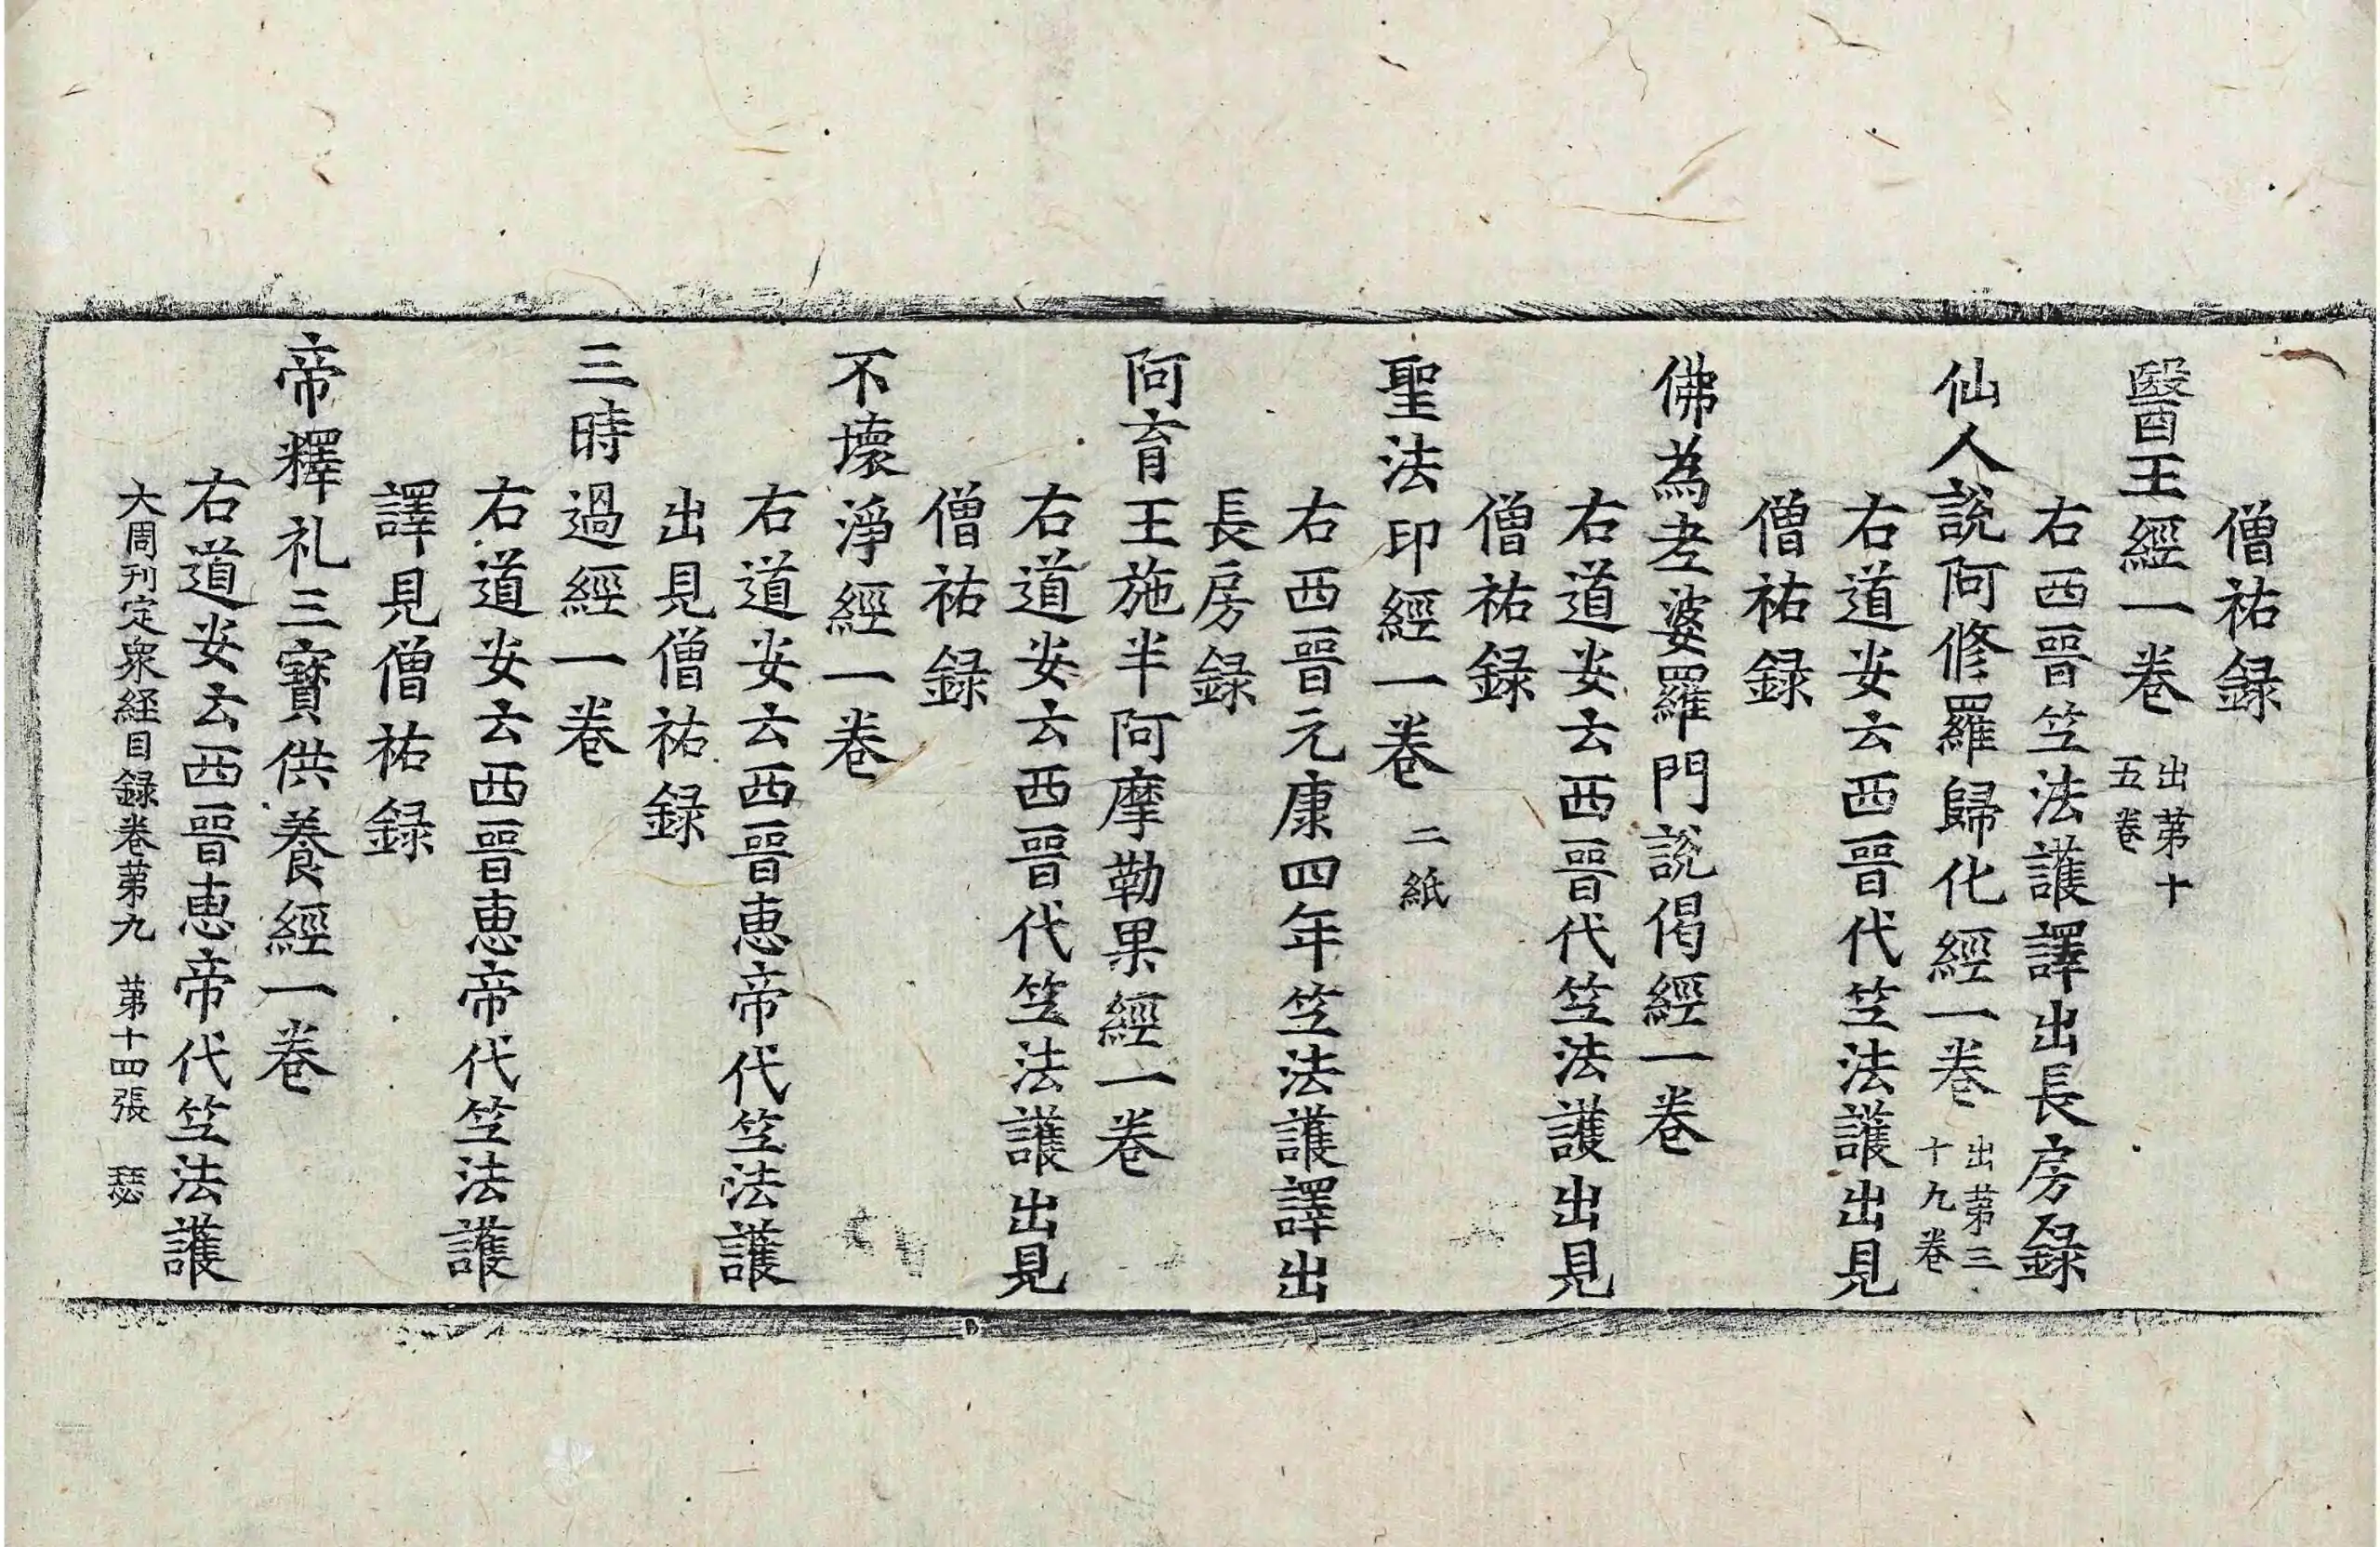 僧祐録
醫王經一卷 出第十五卷
右西晉笁法護譯出長房録
仙人說阿修羅歸化經一卷 出第三十九卷
右道安云西晉代笁法護出見
僧祐録
佛為老婆羅門說偈經一卷
右道安云西晉代笁法護出見
僧祐録
聖法印經一卷 二紙
右西晉元康四年笁法護譯出
長房録
阿育王施半阿摩勒果經一卷
右道安云西晉代笁法護出見
僧祐録
不壞淨經一卷
右道安云西晉恵帝代笁法護
出見僧祐録
三時過經一卷
右道安云西晉恵帝代笁法護
譯見僧祐録
帝釋礼三寶供養經一卷
右道安云西晉恵帝代笁法護
大周刊定衆経目録卷第九 第十四張 瑟